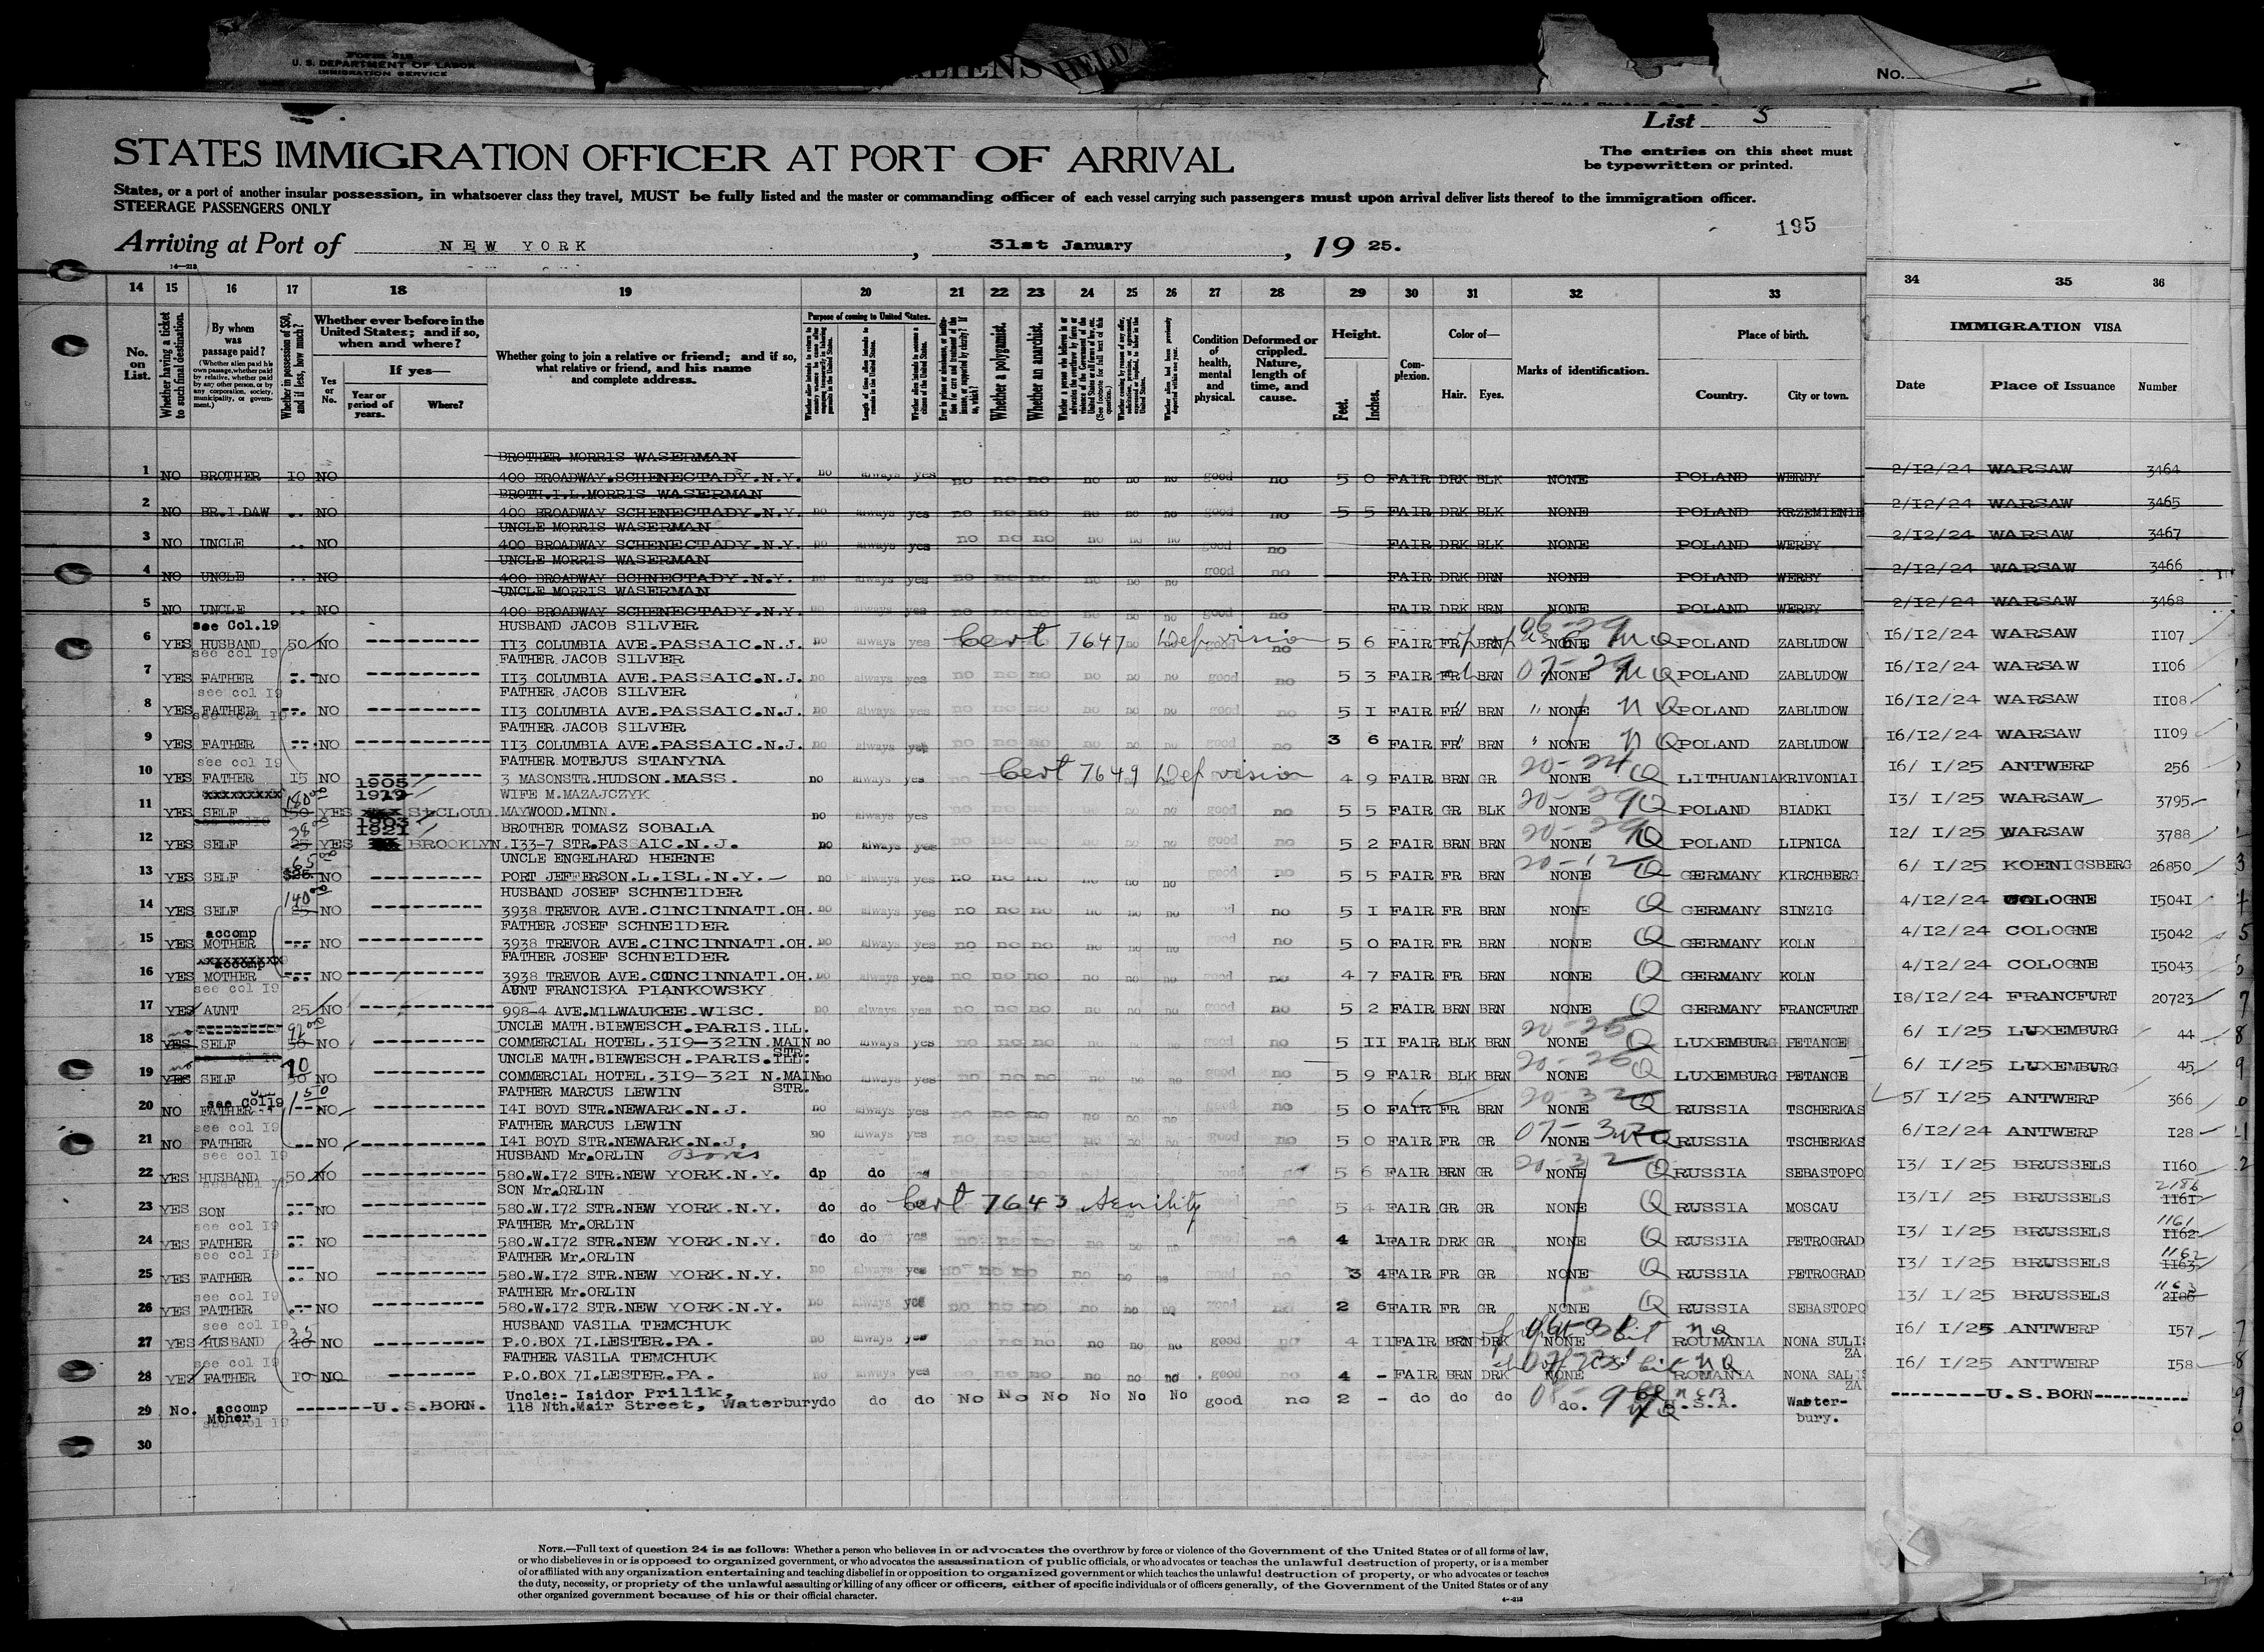 FORM 315
U. S. DEPARTMENT OF LABOR
IMMIGRATION SERVICE
ALIENS HELD
No.
List 5
STATES IMMIGRATION OFFICER AT PORT OF ARRIVAL
The entries on this sheet must
be typewritten or printed.
States, or a port of another insular possession, in whatsoever class they travel, MUST be fully listed and the master or commanding officer of each vessel carrying such passengers must upon arrival deliver lists thereof to the immigration officer.
STEERAGE PASSENGERS ONLY
195
Arriving at Port of NEW YORK, 31st January, 19 25.
14—213
14 15 16 17 18 19 20 21 22 23 24 25 26 27 28 29 30 31 32 33 34 35 36
No. on List.
Whether having a ticket to such final destination.
By whom was passage paid?
(Whether alien paid his own passage, whether paid by relative, whether paid by any other person, or by any corporation, society, municipality, or government.)
Whether in possession of $50, and if less, how much?
Whether ever before in the United States; and if so, when and where?
Yes or No.
If yes—
Year or period of years.
Where?
Whether going to join a relative or friend; and if so, what relative or friend, and his name and complete address.
Purpose of coming to United States.
Length of time alien intends to remain in the United States.
Whether alien intends to become a citizen of the United States.
Whether a polygamist.
Whether an anarchist.
Condition of health, mental and physical.
Deformed or crippled. Nature, length of time, and cause.
Height.
Feet. Inches.
Complexion.
Color of—
Hair. Eyes.
Marks of identification.
Place of birth.
Country. City or town.
IMMIGRATION VISA
Date Place of Issuance Number
BROTHER MORRIS WASERMAN
1 NO BROTHER 10 NO 400 BROADWAY.SCHENECTADY.N.Y. no always yes no no no no no no good no 5 0 FAIR DRK BLK NONE POLAND WERBY 2/I2/24 WARSAW 3464
BROTH.I.L.MORRIS WASERMAN
2 NO BR.I.DAW .. NO 400 BROADWAY SCHENECTADY.N.Y. no always yes no no no no no no good no 5 5 FAIR DRK BLK NONE POLAND KRZEMIENIE 2/I2/24 WARSAW 3465
UNCLE MORRIS WASERMAN
3 NO UNCLE .. NO 400 BROADWAY SCHENECTADY.N.Y. no always yes no no no no no no good no FAIR DRK BLK NONE POLAND WERBY 2/I2/24 WARSAW 3467
UNCLE MORRIS WASERMAN
4 NO UNCLE .. NO 400 BROADWAY SCHNECTADY.N.Y. no always yes no no no no no no good no FAIR DRK BRN NONE POLAND WERBY 2/I2/24 WARSAW 3466
UNCLE MORRIS WASERMAN
5 NO UNCLE .. NO 400 BROADWAY SCHENECTADY.N.Y. no always yes no no no no no no good no FAIR DRK BRN NONE POLAND WERBY 2/I2/24 WARSAW 3468
see Col.19 HUSBAND JACOB SILVER
6 YES HUSBAND 50 NO II3 COLUMBIA AVE.PASSAIC.N.J. no always yes Cert 7647 Def vision good no 5 6 FAIR FR BRN NONE Q POLAND ZABLUDOW I6/I2/24 WARSAW II07
see col I9 FATHER JACOB SILVER
7 YES FATHER NO II3 COLUMBIA AVE.PASSAIC.N.J. no always yes no no no no no no good no 5 3 FAIR FR BRN NONE Q POLAND ZABLUDOW I6/I2/24 WARSAW II06
see col I9 FATHER JACOB SILVER
8 YES FATHER NO II3 COLUMBIA AVE.PASSAIC.N.J. no always yes no no no no no no good no 5 I FAIR FR BRN NONE Q POLAND ZABLUDOW I6/I2/24 WARSAW II08
see col I9 FATHER JACOB SILVER
9 YES FATHER NO II3 COLUMBIA AVE.PASSAIC.N.J. no always yes no no no no no no good no 3 6 FAIR FR BRN NONE Q POLAND ZABLUDOW I6/I2/24 WARSAW II09
see col I9 FATHER MOTEJUS STANYNA
10 YES FATHER I5 NO 3 MASONSTR.HUDSON.MASS. no always yes Cert 7649 Def vision 4 9 FAIR BRN GR 20-24 NONE Q LITHUANIA KRIVONIAI I6/ I/25 ANTWERP 256
1905 WIFE M.MAZAJCZYK
11 YES SELF 180 YES St.CLOUD MAYWOOD.MINN. no always yes no good no 5 5 FAIR GR BLK 20-29 NONE Q POLAND BIADKI I3/ I/25 WARSAW 3795
1903 1921 BROTHER TOMASZ SOBALA
12 YES SELF 38 25 YES BROOKLYN I33-7 STR.PASSAIC.N.J. no always yes good no 5 2 FAIR BRN BRN 20-29 NONE Q POLAND LIPNICA I2/ I/25 WARSAW 3788
UNCLE ENGELHARD HEENE
13 YES SELF 65 $25. NO PORT JEFFERSON.L.ISL.N.Y. no always yes no no no no no no good no 5 5 FAIR FR BRN 20-12 NONE Q GERMANY KIRCHBERG 6/ I/25 KOENIGSBERG 26850
HUSBAND JOSEF SCHNEIDER
14 YES SELF 140 25 NO 3938 TREVOR AVE.CINCINNATI.OH. no always yes no no no no no no good no 5 I FAIR FR BRN NONE Q GERMANY SINZIG 4/I2/24 COLOGNE I504I
accomp FATHER JOSEF SCHNEIDER
15 YES MOTHER --- NO 3938 TREVOR AVE.CINCINNATI.OH. no always yes no no no no no no good no 5 0 FAIR FR BRN NONE Q GERMANY KOLN 4/I2/24 COLOGNE I5042
accomp FATHER JOSEF SCHNEIDER
16 YES MOTHER --- NO 3938 TREVOR AVE.CINCINNATI.OH. no always yes no no no no no no good no 4 7 FAIR FR BRN NONE Q GERMANY KOLN 4/I2/24 COLOGNE I5043
see col I9 AUNT FRANCISKA PIANKOWSKY
17 YES AUNT 25 NO 998-4 AVE.MILWAUKEE.WISC. no always yes no no no no no no good no 5 2 FAIR BRN BRN NONE Q GERMANY FRANCFURT I8/I2/24 FRANCFURT 20723
UNCLE MATH.BIEWESCH.PARIS.ILL.
18 no YES SELF 92 50 NO COMMERCIAL HOTEL.3I9-32IN.MAIN STR. no always yes no no no no no no good no 5 II FAIR BLK BRN 20-26 NONE Q LUXEMBURG PETANGE 6/ I/25 LUXEMBURG 44
UNCLE MATH.BIEWESCH.PARIS.ILL.
19 no YES SELF 70 50 NO COMMERCIAL HOTEL.3I9-32I N.MAIN STR. no always yes no no no no no no good no 5 9 FAIR BLK BRN 20-26 NONE Q LUXEMBURG PETANGE 6/ I/25 LUXEMBURG 45
see Col19 FATHER MARCUS LEWIN
20 NO FATHER 150 NO I4I BOYD STR.NEWARK.N.J. no always yes no no no no no no good no 5 0 FAIR FR BRN 20-32 NONE Q RUSSIA TSCHERKAS 5/ I/25 ANTWERP 366
see col I9 FATHER MARCUS LEWIN
21 NO FATHER -- NO I4I BOYD STR.NEWARK.N.J, no always yes no no no no no no good no 5 0 FAIR FR GR NONE Q RUSSIA TSCHERKAS 6/I2/24 ANTWERP I28
see col I9 HUSBAND Mr.ORLIN Boris
22 YES HUSBAND 50 NO 580.W.I72 STR.NEW YORK.N.Y. dp do 5 6 FAIR BRN GR 20-32 NONE Q RUSSIA SEBASTOPO I3/ I/25 BRUSSELS II60
see col I9 SON Mr.ORLIN
23 YES SON NO 580.W.I72 STR.NEW YORK.N.Y. do do Cert 7643 Senility 5 4 FAIR GR GR NONE Q RUSSIA MOSCAU I3/I/ 25 BRUSSELS 2186 II61
see col I9 FATHER Mr.ORLIN
24 YES FATHER NO 580.W.I72 STR.NEW YORK.N.Y. do do yes no good no 4 1 FAIR DRK GR NONE Q RUSSIA PETROGRAD I3/ I/25 BRUSSELS 1161 II62
see col I9 FATHER Mr.ORLIN
25 YES FATHER NO 580.W.I72 STR.NEW YORK.N.Y. no always yes no no no no no no good no 3 4 FAIR FR GR NONE Q RUSSIA PETROGRAD I3/ I/25 BRUSSELS 1162 II63
see col I9 FATHER Mr.ORLIN
26 YES FATHER NO 580.W.I72 STR.NEW YORK.N.Y. no always yes no no no no no no good no 2 6 FAIR FR GR NONE Q RUSSIA SEBASTOPO I3/ I/25 BRUSSELS 1163 2186
see col I9 HUSBAND VASILA TEMCHUK
27 YES HUSBAND NO P.O.BOX 7I.LESTER.PA. no always yes no no no no no good no 4 II FAIR BRN DRK NONE ROUMANIA NONA SULIS ZA I6/ I/25 ANTWERP I57
see col I9 FATHER VASILA TEMCHUK
28 YES FATHER IO NO P.O.BOX 7I.LESTER.PA. always yes no no no no no no good no 4 - FAIR BRN DRK NONE ROMANIA NONA SALIS ZA I6/ I/25 ANTWERP I58
accomp Uncle:- Isidor Prilik,
29 No. Mther -------U.S.BORN. 118 Nth.Mair Street, Waterbury do do do No No No No No No good no 2 - do do do do. U.S.A. Water-bury. --------U.S.BORN-----------
see col I9
30
NOTE.—Full text of question 24 is as follows: Whether a person who believes in or advocates the overthrow by force or violence of the Government of the United States or of all forms of law,
or who disbelieves in or is opposed to organized government, or who advocates the assassination of public officials, or who advocates or teaches the unlawful destruction of property, or is a member
of or affiliated with any organization entertaining and teaching disbelief in or opposition to organized government or which teaches the unlawful destruction of property, or who advocates or teaches
the duty, necessity, or propriety of the unlawful assaulting or killing of any officer or officers, either of specific individuals or of officers generally, of the Government of the United States or of any
other organized government because of his or their official character.
4—213